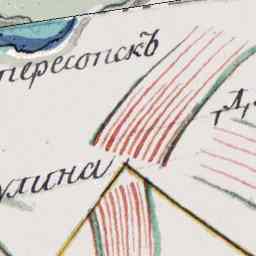 пересопскъ
улина